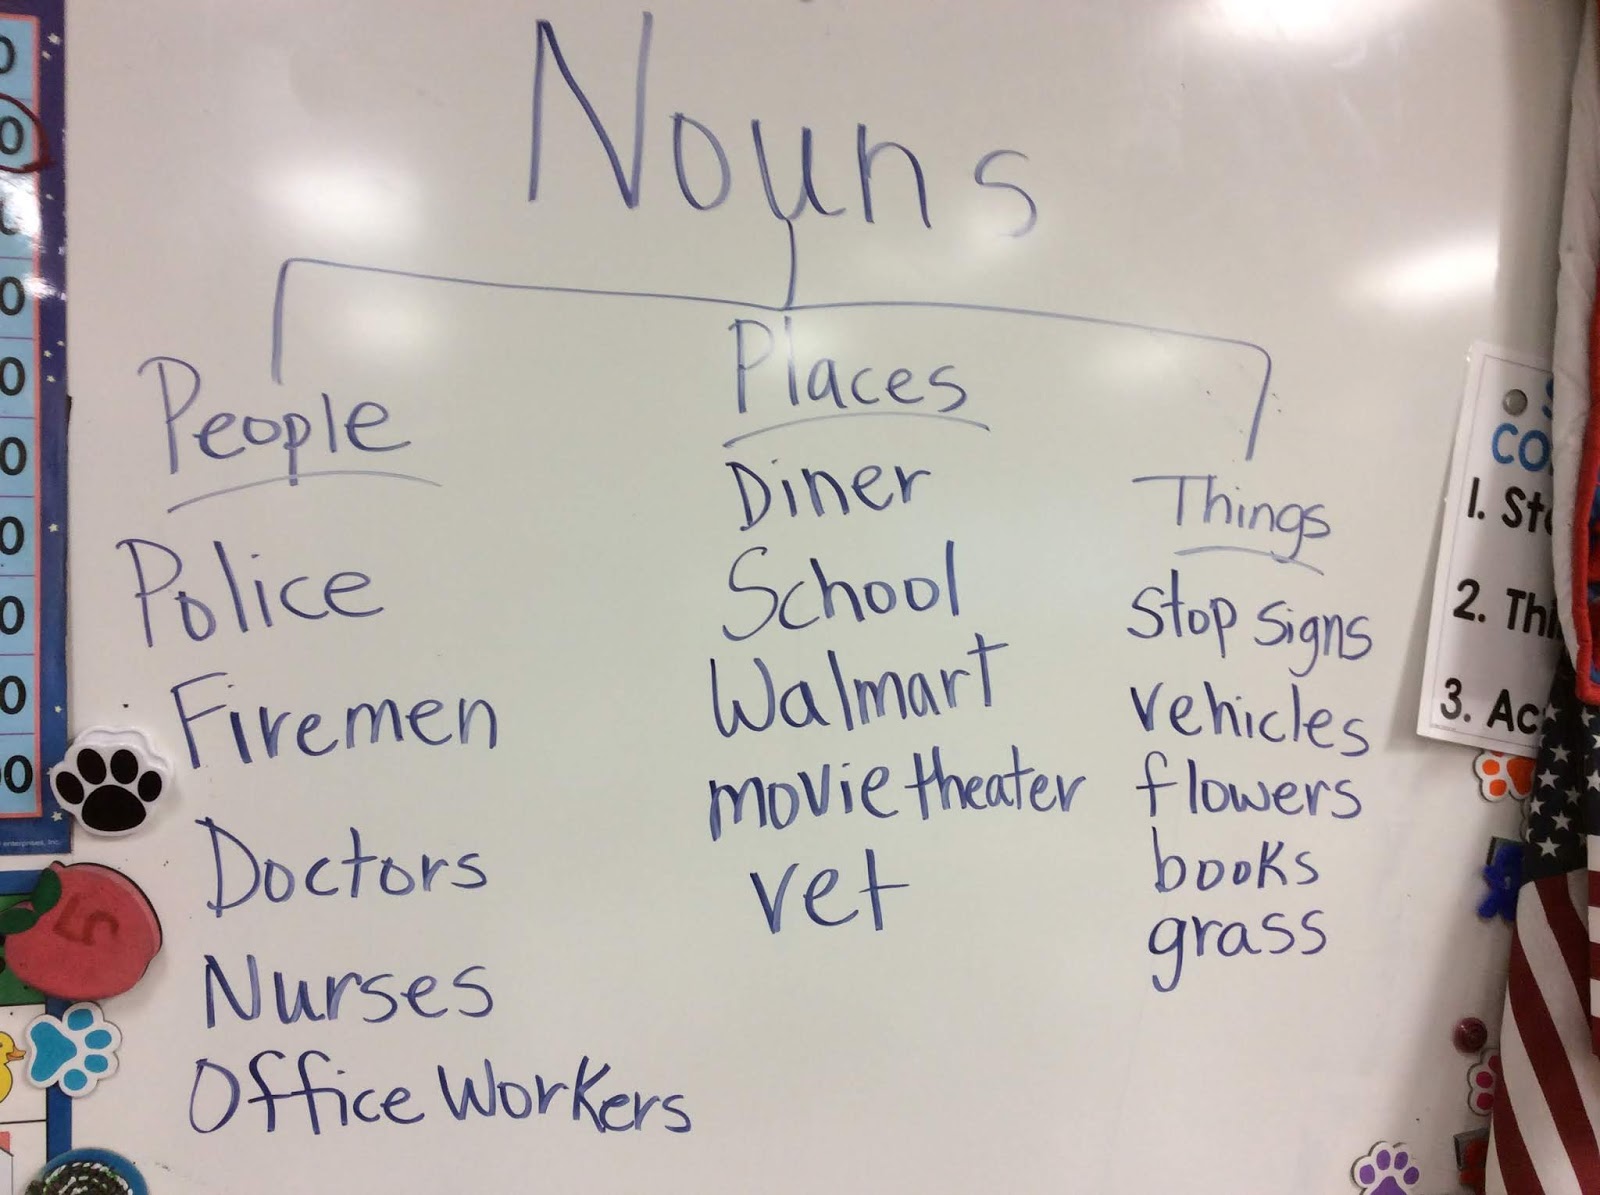 Nouns
People
Police
Firemen
Doctors
Nurses
Office Workers
Places
Diner
School
Walmart
movie theater
vet
Things
Stop signs
vehicles
flowers
books
grass
CO
1. Sto
2. Thi
3. Ac
0
0
0
0
0
0
0
0
00
enterprises, inc.
5